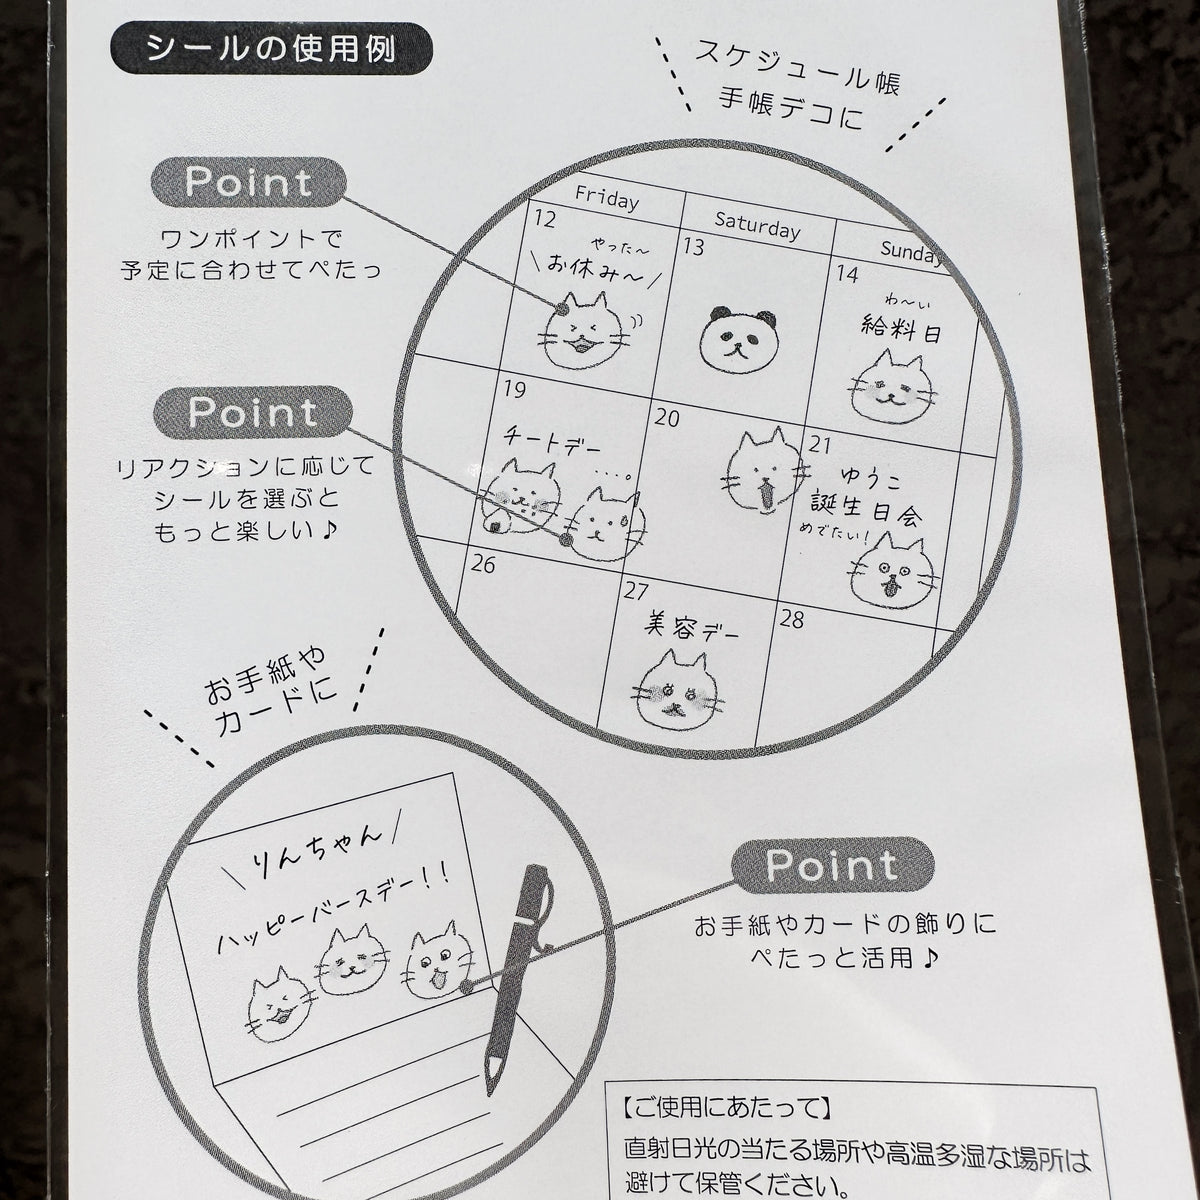 シールの使用例
スケジュール帳
手帳デコに
Point
ワンポイントで
予定に合わせてぺたっ
Point
リアクションに応じて
シールを選ぶと
もっと楽しい♪
Friday
Saturday
Sunday
12
やった〜
\お休み〜/
13
14
わ〜い
給料日
19
チートデー
....
20
21
ゆうこ
誕生日会
めでたい!
26
27
美容デー
28
お手紙や
カードに
\りんちゃん/
ハッピーバースデー!!
Point
お手紙やカードの飾りに
ぺたっと活用♪
【ご使用にあたって】
直射日光の当たる場所や高温多湿な場所は
避けて保管ください。